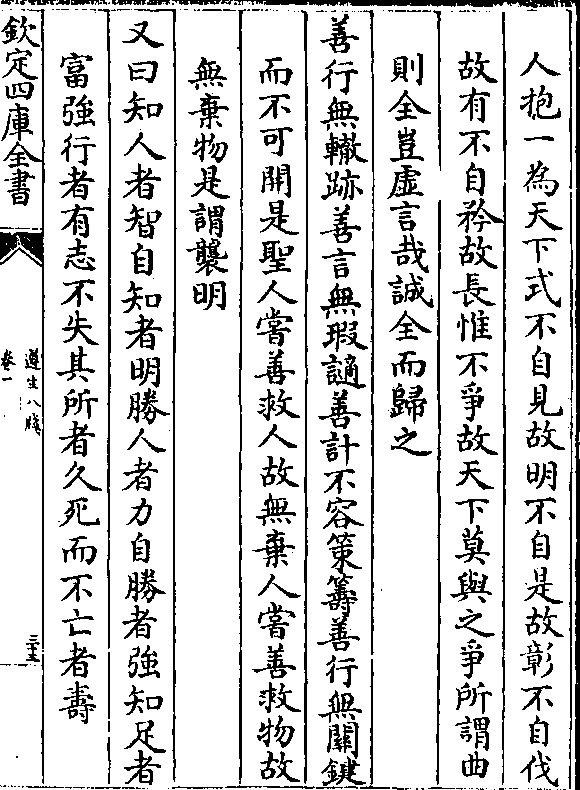 人抱一為天下式不自見故明不自是故彰不自伐
故有不自矜故長惟不爭故天下莫與之爭所謂曲
則全豈虛言哉誠全而歸之
善行無轍跡善言無瑕讁善計不容策籌善行無關鍵
而不可開是聖人嘗善救人故無棄人嘗善救物故
無棄物是謂襲明
又曰知人者智自知者明勝人者力自勝者強知足者
富強行者有志不失其所者久死而不亡者壽
欽定四庫全書
遵生八牋
卷一
三十五